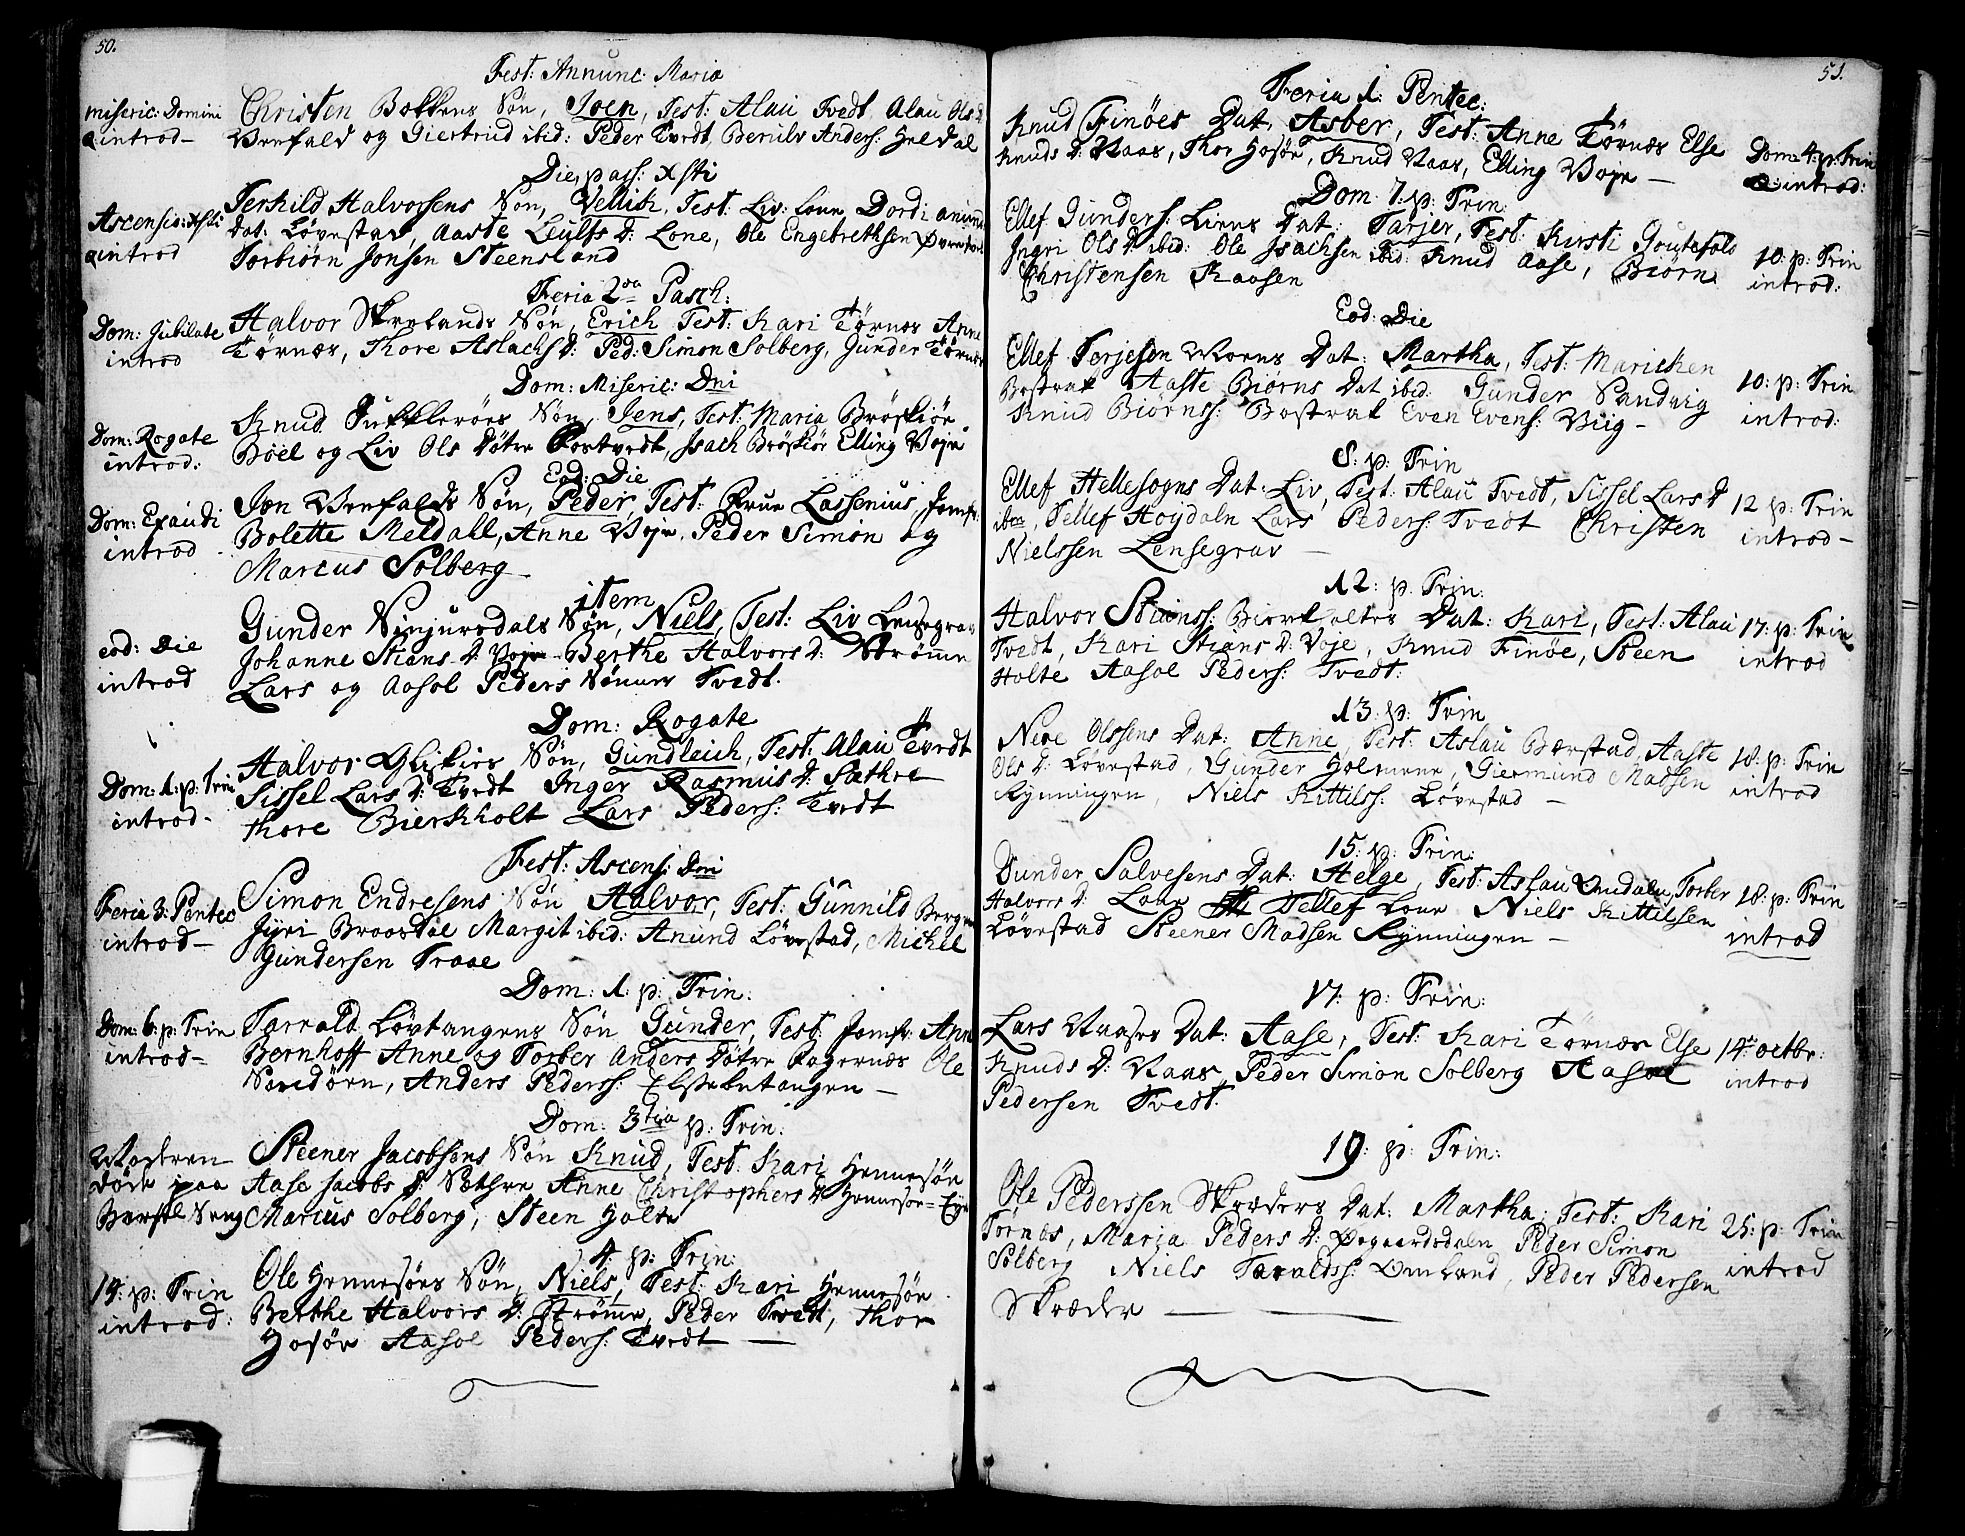 50.
Fest: Annunc: Mariæ
miseric: Domini
introd-
Christen Bokkens Søn, Joen, Test: Alau Tvedt, Alau Ols D
og Giertrud ibid: Peder Tvedt, Berulv Anders: Heldal
Die pass: Xsti
Ascensio: Xsti
introd
Terkild Halvorsens Søn, Vellich, Test: Liv: Lone Dordi
Dat: Løvestad, Aaste Leulfs D: Lone, Ole Engebrethsen
Torbiørn Jonsen Steensland
Feria 2da Pasch:
Dom: Jubilate
introd
Halvor Skrelands Søn, Erich Test: Kari Tørnæs Anne
Tørnæs, Thore Aslachs D: Ped: Simon Solberg, Gunder Tørnæs
Dom: Miseric: Dni
Dom: Rogate
introd:
Knud Søn, Jens, Test: Maria Brøskiør
Bøel og Liv Ols Døtre Isach Brøskiør Elling Voje
Eod: Die
Dom: Exaudi
introd
Jon Søn, Peder, Test: Frue Lassenius, Jomfr:
Bolette Meldall, Anne Voje, Peder Simon og
Marcus Solberg
item
eod: Die
introd
Gunder Søn, Niels, Test: Liv Lensegrav
Johanne Stians D: Voje Berthe Halvors D: Strømme
Lars og Aasol Peders Sønner Tvedt.
Dom: Rogate
Dom: 1: p: Trin
introd-
Halvor Søn, Gundleich, Test: Alau Tvedt
Sissel Lars D: Tvedt Inger Rasmus D: Sæthre
Thore Bierkholt Lars Peders: Tvedt
Fest: Ascens: Dni
Feria 3: Pentec
introd-
Simon Endresens Søn Halvor, Test: Gunnild
Jyri Braasdal Margit ibid: Anund Løvestad, Michel
Gundersen Traae
Dom: 1: p: Trin:
Dom: 6: p: Trin
introd-
Tarrald Løvtangens Søn Gunder, Test: Jomfr: Anne
Bernhoff Anne og Torber Anders Døtre Ole
Anders Peders:
Dom: 3tia p: Trin:
døde paa
Barsel Seng
Steener Jacobsens Søn Knud, Test: Kari Hennesøen
Aase Jacobs D: Sæthre Anne Christophers D: Hennesøe=Eye
Marcus Solberg, Steen Holte
4: p: Trin:
14: p: Trin
introd:
Ole Hennesøes Søn, Niels, Test: Kari Hennesøe
Berthe Halvors D: Strømme, Peder Tvedt, Thor
Aasol Peders: Tvedt
51.
Feria 1: Pentec:
Knud Finøes Dat: Asber, Test: Anne Tørnæs Else
Knuds D: Vaas, Thor Knud Vaas, Elling Voje
Dom: 4: p: Trin
introd:
Dom: 7: p: Trin:
Ellef Gunders: Liens Dat: Tarjer, Test: Kirsti
Ingri Ols D ibid: Ole Isachsen ibid: Knud Aase, Biørn
Christensen Kaasen
10: p: Trin
introd:
Eod: Die
Ellef Terjesen Moens Dat: Martha, Test: Marichen
Bostrak Aaste Biørns Dat ibid. Gunder Sandvig
Knud Biørns: Bostrak Even Evens: Viig-
10: p: Trin
introd:
8: p: Trin
Ellef Hellesogns Dat: Liv, Test: Alau Tvedt, Sissel Lars D
Tellef Høydaln Lars Peders: Tvedt Christen
Nielssen Lensegrav
12 p: Trin
introd-
12: p: Trin:
Halvor Stians: Bierkholtes Dat: Kari, Test: Alau
Tvedt, Kari Stians D: Voje, Knud Finøe, Steen
Holte Aasol Peders: Tvedt:
17: p: Trin
introd
13: p: Trin
Nere Olssens Dat: Anne, Test: Aslau Aaste
Ols D: Løvestad, Gunder Holmene, Giermund Madsen
Rynningen, Niels Kittilss: Løvestad
18: p: Trin
introd
15: p: Trin:
Gunder Salvesens Dat: Helge, Test: Aslau Torber
Halvors D: Lone Tellef Lone Niels Kittilsen
Løvestad Steener Madsen Rynningen
18: p: Trin
introd
17: p: Trin:
Lars Vaases Dat: Aase, Test: Kari Tørnæs Else
Knuds D: Vaas, Peder Simon Solberg Aasol
Pedersen Tvedt.
14de octbr:
introd
19: p: Trin:
Ole Pederssen Skræders Dat: Martha: Test: Kari
Tørnæs, Maria Peders D: Peder Simon
Solberg Niels Taraldss: Omland, Peder Pedersen
Skræder
25: p: Trin
introd